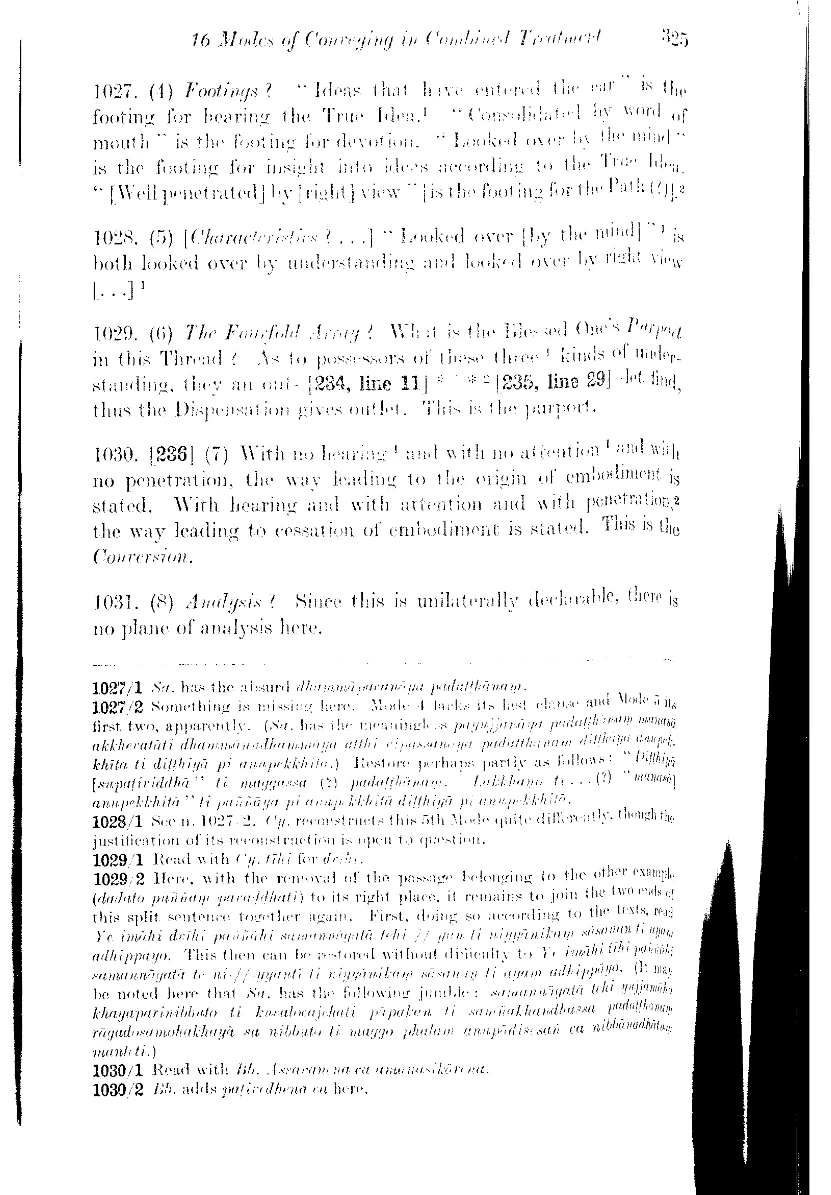 16 Modes of Conveying in Combined Treatment 325
1027. (4) Footings? “Ideas that have entered the ear” is the
footing for hearing the True Idea.¹ “Consolidated by word of
mouth” is the footing for devotion. “Looked over by the mind”
is the footing for insight into ideas according to the True Idea.
“[Well penetrated] by [right] view” [is the footing for the Path (?)].²
1028. (5) [Characteristics? . . .] “Looked over [by the mind]”¹ is
both looked over by understanding and looked over by right view
[. . .]¹
1029. (6) The Fourfold Array? What is the Blessed One's Purport
in this Thread? As to possessors of these three¹ kinds of under-
standing, they an out- [234, line 11] * * *² [235, line 29] -let find,
thus the Dispensation gives outlet. This is the purport.
1030. [236] (7) With no hearing¹ and with no attention¹ and with
no penetration, the way leading to the origin of embodiment is
stated. With hearing and with attention and with penetration,²
the way leading to cessation of embodiment is stated. This is the
Conversion.
1031. (8) Analysis? Since this is unilaterally declarable, there is
no plane of analysis here.
1027/1 Sa. has the absurd padaṭṭhānaṃ.
1027/2 Something is missing here. Mode 4 lacks its last clause and Mode 5 its
first two, apparently. (Sa. has the padaṭṭhānaṃ
dhammānudhammāya atthi vipassanāya padaṭṭhānaṃ diṭṭhiyā anupek-
khitā ti diṭṭhiyā pi anupekkhitā.) Restore perhaps partly as follows: “Diṭṭhiyā
[supaṭividdhā” ti maggassa (?) padaṭṭhānaṃ. Lakkhaṇā ti . . . (?) “manasā]
anupekkhitā” ti paññāya pi anupekkhitā diṭṭhiyā pi anupekkhitā.
1028/1 See n. 1027/2. Cy. reconstructs this 5th Mode quite differently, though the
justification of its reconstruction is open to question.
1029/1 Read with Cy. tīhi for
1029/2 Here, with the removal of the passage belonging to the other example
(dadato puññaṃ pavaḍḍhati) to its right place, it remains to join the two ends of
this split sentence together again. First, doing so according to the texts, read
Ye imāhi dvīhi paññāhi samannāgatā tehi // yan ti niyyānikaṃ sāsanan ti ayaṃ
adhippāyo. This then can be restored without difficulty to Ye imāhi tīhi paññāhi
samannāgatā te ni-// yyanti ti niyyānikaṃ sāsanaṃ ti ayaṃ adhippāyo. (It may
be noted here that Sa. has the following jumble: samannāgatā tehi
khayaparinibbuto ti pāpaken ti padaṭṭhānaṃ
rāgadosamohakkhayā sa nibbuto ti maggo phalaṃ anupādisesañ ca nibbānadhātuṃ
ti.)
1030/1 Read with Bb. Assavanena ca amanasikārena.
1030/2 Bb. adds paṭivedhena ca here.